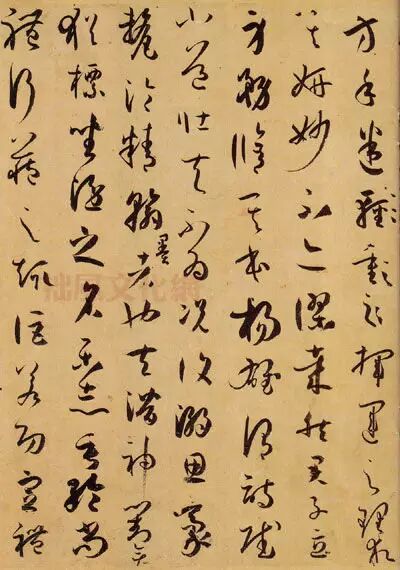 方手迷揮運之理求
其妍妙不亦謬哉然君子立
身務脩其本楊雄謂詩賦
小道壯夫不為況復溺思豪
氂淪精翰墨者也夫潛神對弈
猶標坐隱之名樂志垂綸尚
體行藏之趣詎若功宣禮
拙風文化網